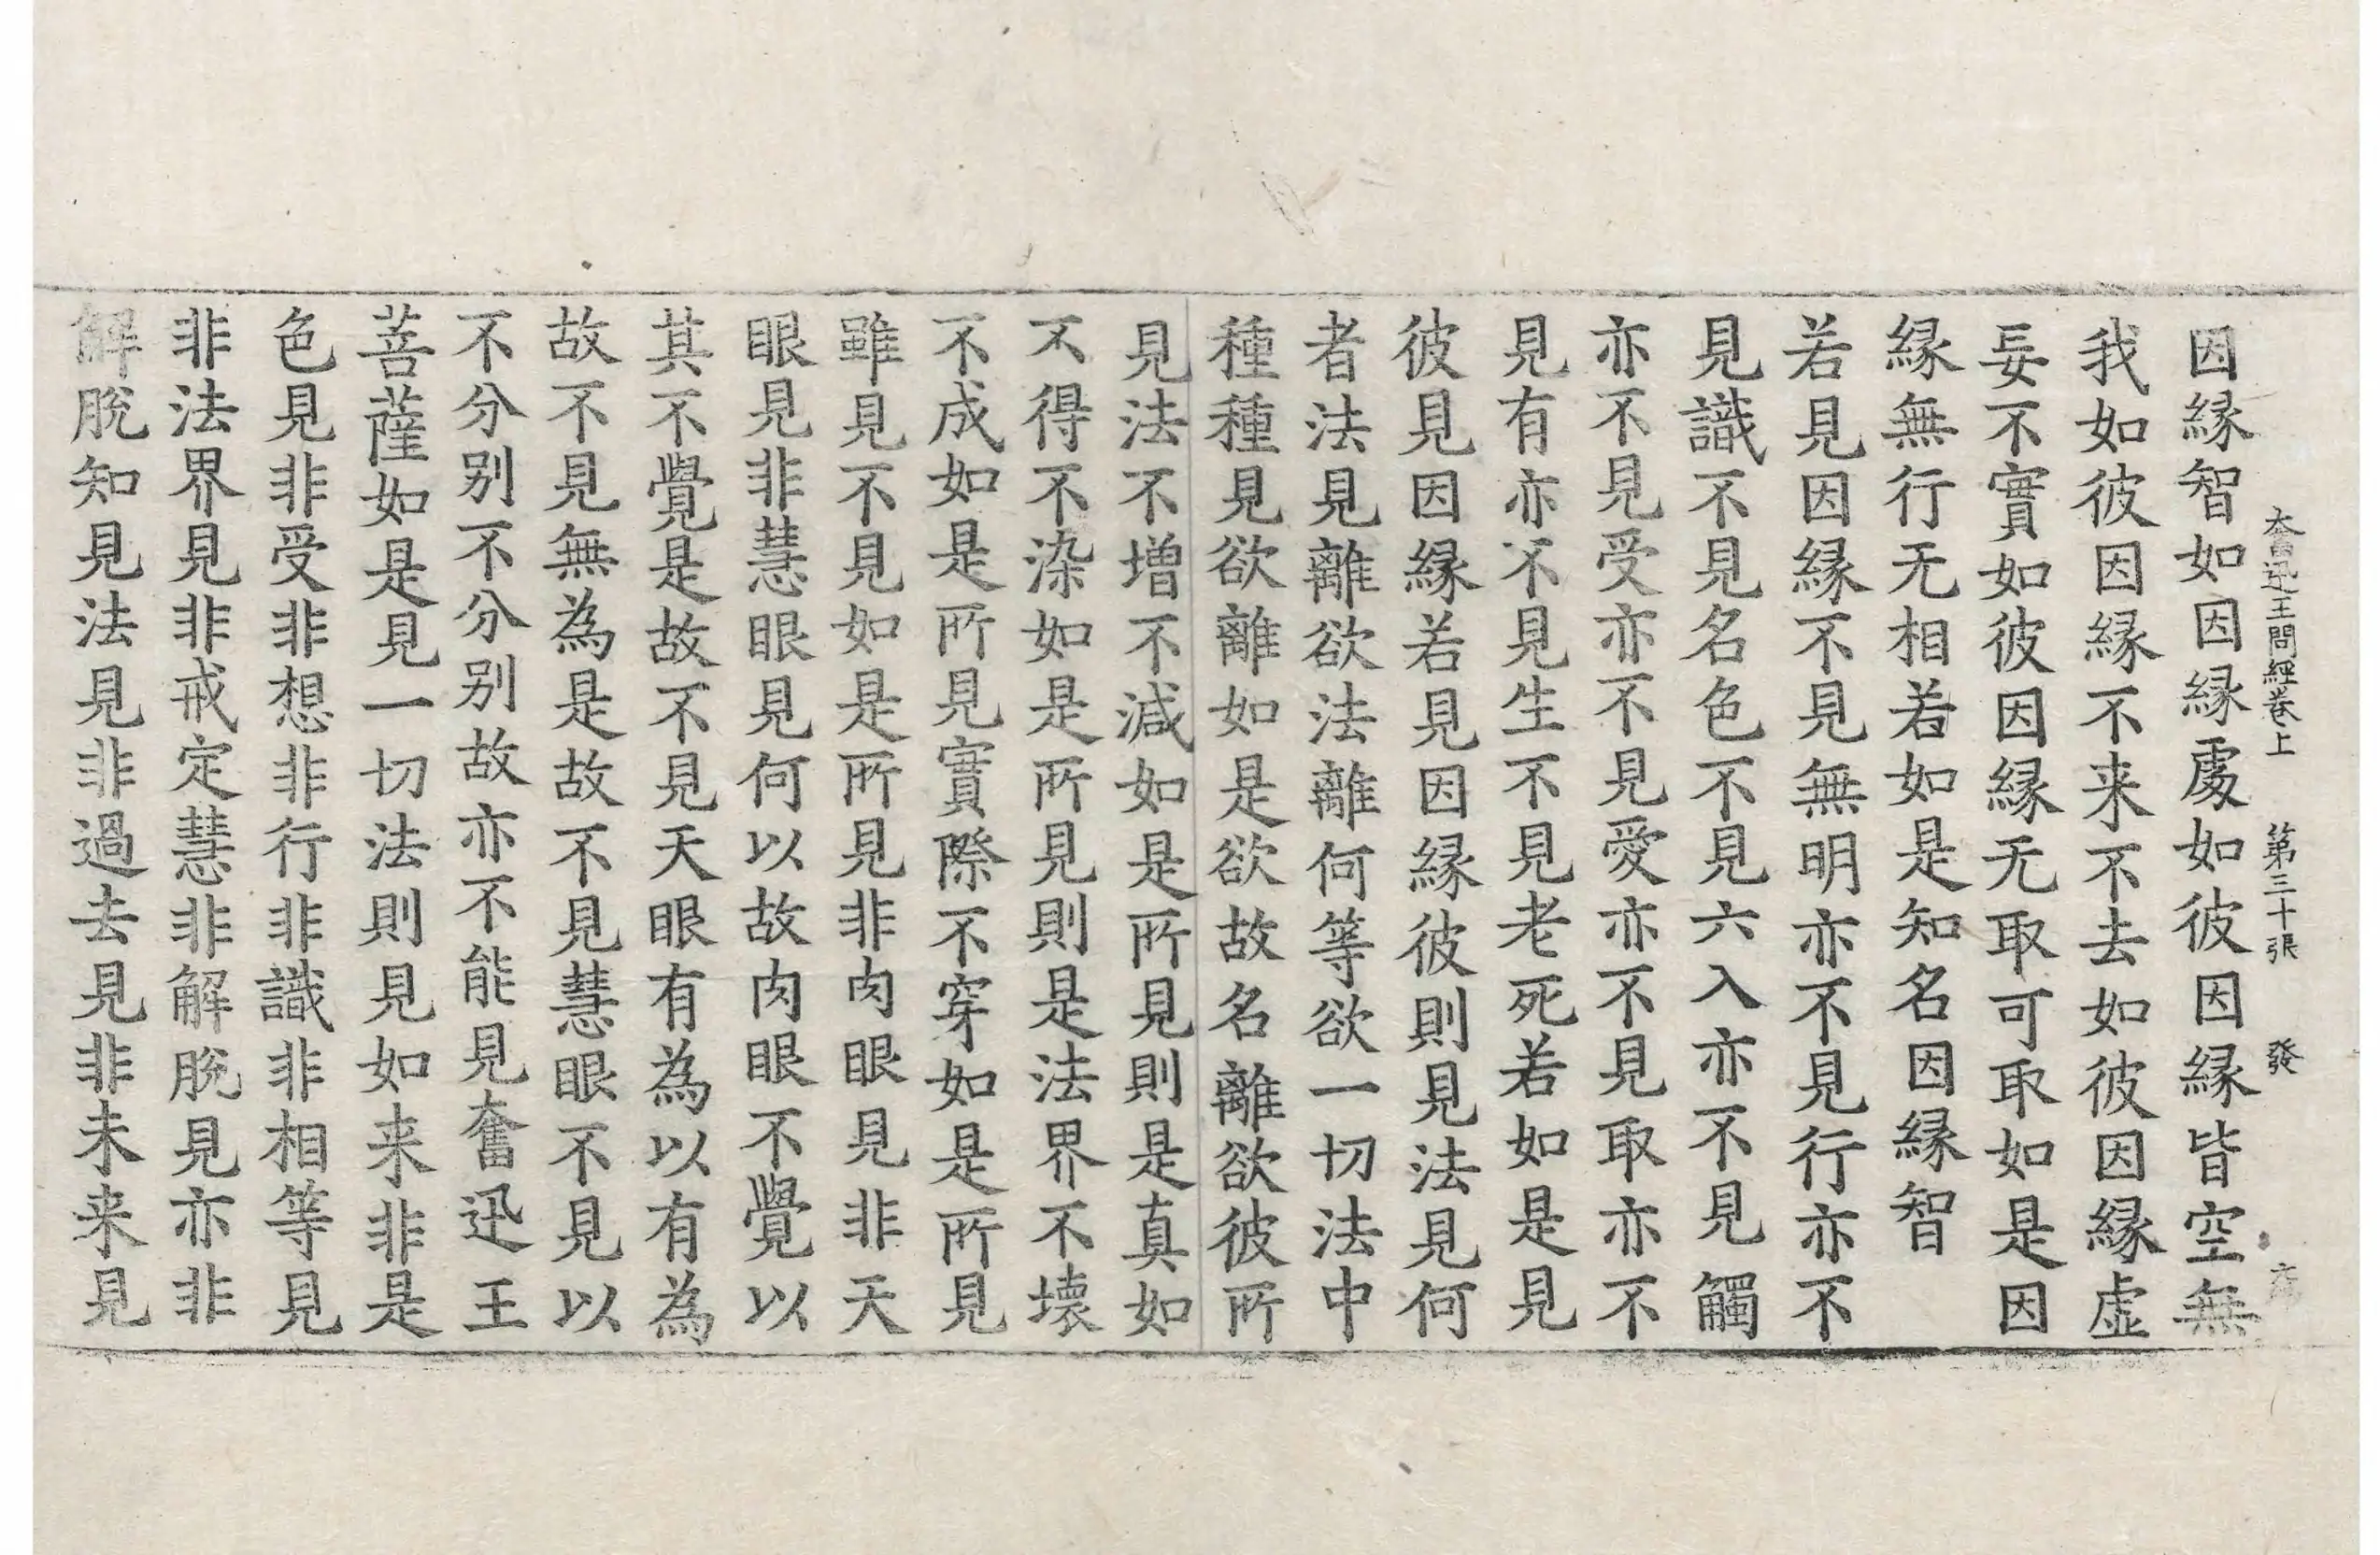 奮迅王問經卷上　第三十張　發
因縁智如因縁處如彼因縁皆空無
我如彼因縁不来不去如彼因縁虚
妄不實如彼因縁无取可取如是因
縁無行无相若如是知名因縁智
若見因縁不見無明亦不見行亦不
見識不見名色不見六入亦不見觸
亦不見受亦不見愛亦不見取亦不
見有亦不見生不見老死若如是見
彼見因縁若見因縁彼則見法見何
者法見離欲法離何等欲一切法中
種種見欲離如是欲故名離欲彼所
見法不增不減如是所見則是真如
不得不染如是所見則是法界不壞
不成如是所見實際不穿如是所見
雖見不見如是所見非肉眼見非天
眼見非慧眼見何以故肉眼不覺以
其不覺是故不見天眼有為以有為
故不見無為是故不見慧眼不見以
不分别不分别故亦不能見奮迅王
菩薩如是見一切法則見如来非是
色見非受非想非行非識非相等見
非法界見非戒定慧非解脫見亦非
解脫知見法見非過去見非未来見